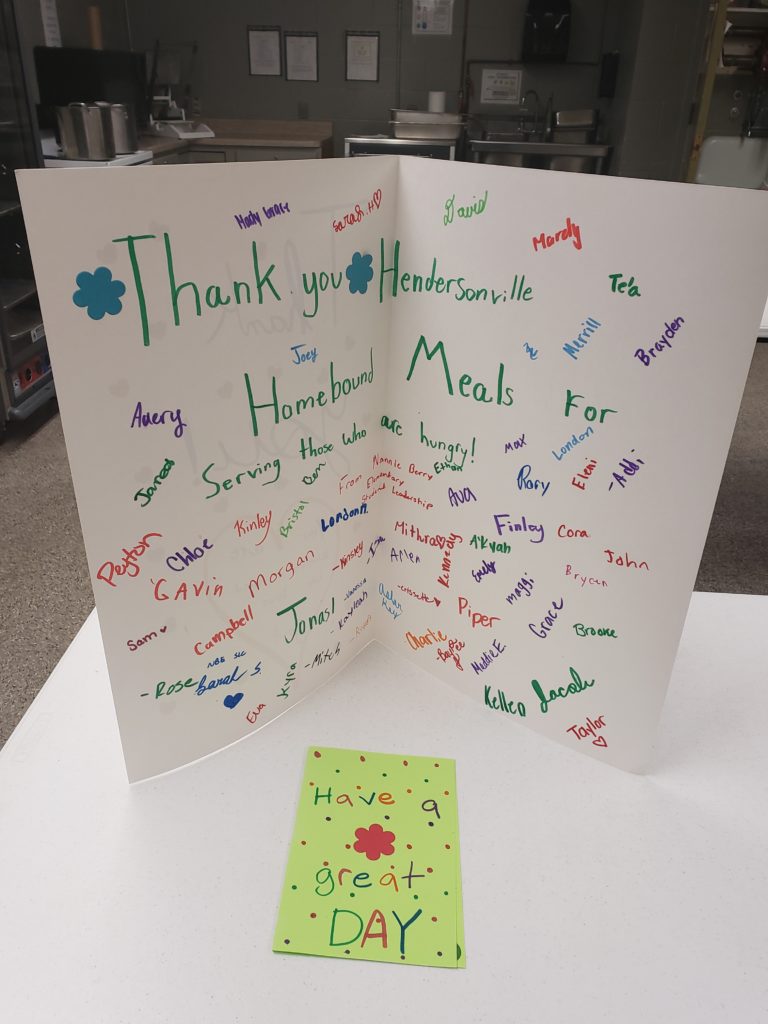 Sarah.H
David
Mardy
Thank you Hendersonville
Te'a
Joey
Merrill
Brayden
Homebound Meals For
Avery
Serving those who are hungry!
Max
London
James
Ben
From Nannie Berry
Elementary
Student Leadership
Ethan
Ava
Rory
Eleni
-Addi
Peyton
Chloe
Kinley
Bristol
London
Kennedy
A'Kyah
Finley
Cora
John
GAVIN
Morgan
-Kinsley
Allen
Emily
Maggi
Brycen
Sam
Campbell
Jonas
-Kayleah
Piper
Grace
Brooke
NBE SLC
-Rose
Sarah S.
Kyra
-Mitch
Charlie
Maddie E
Eva
Kellen
Jacob
Taylor
Have a
great
DAY